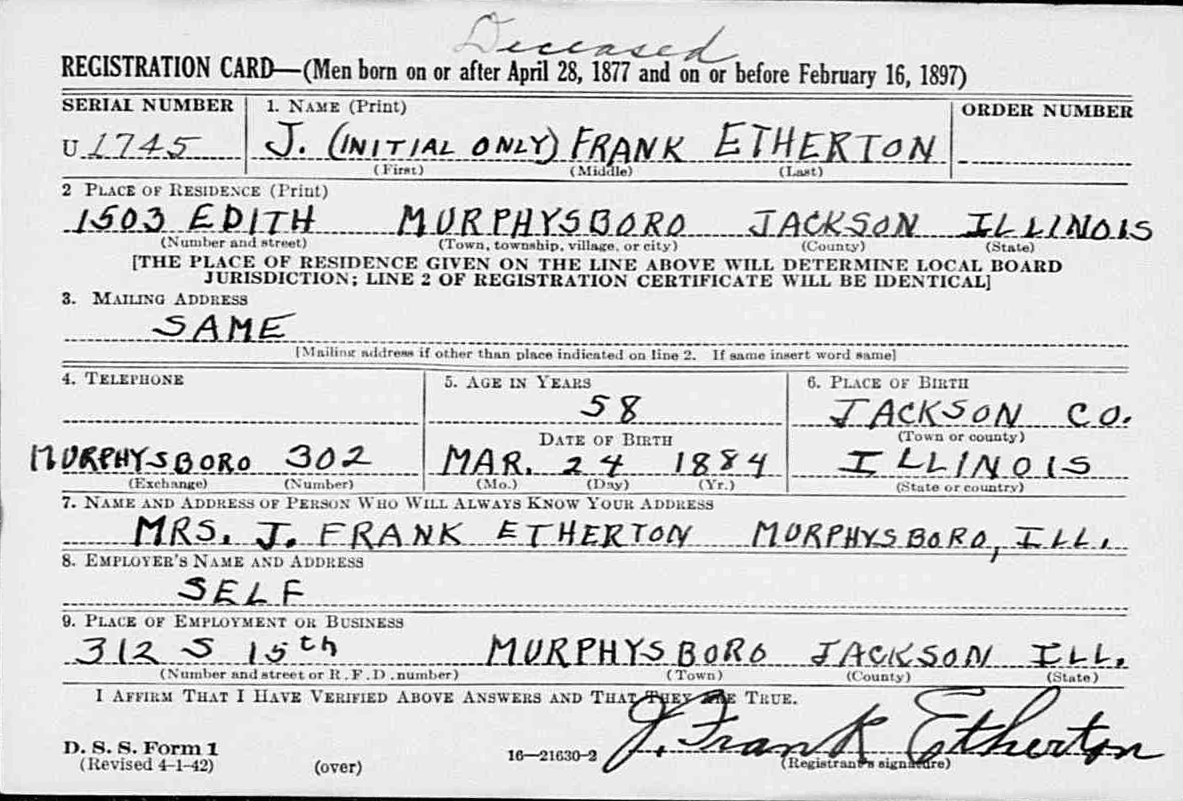 Deceased
REGISTRATION CARD—(Men born on or after April 28, 1877 and on or before February 16, 1897)
SERIAL NUMBER 1. NAME (Print) ORDER NUMBER
U 1745 J. (INITIAL ONLY) FRANK ETHERTON
(First) (Middle) (Last)
2 PLACE OF RESIDENCE (Print)
1503 EDITH MURPHYSBORO JACKSON ILLINOIS
(Number and street) (Town, township, village, or city) (County) (State)
[THE PLACE OF RESIDENCE GIVEN ON THE LINE ABOVE WILL DETERMINE LOCAL BOARD
JURISDICTION; LINE 2 OF REGISTRATION CERTIFICATE WILL BE IDENTICAL]
3. MAILING ADDRESS
SAME
[Mailing address if other than place indicated on line 2. If same insert word same]
4. TELEPHONE 5. AGE IN YEARS 6. PLACE OF BIRTH
58 JACKSON CO.
DATE OF BIRTH (Town or county)
MURPHYSBORO 302 MAR. 24 1884 ILLINOIS
(Exchange) (Number) (Mo.) (Day) (Yr.) (State or country)
7. NAME AND ADDRESS OF PERSON WHO WILL ALWAYS KNOW YOUR ADDRESS
MRS. J. FRANK ETHERTON MURPHYSBORO, ILL.
8. EMPLOYER'S NAME AND ADDRESS
SELF
9. PLACE OF EMPLOYMENT OR BUSINESS
312 S 15th MURPHYSBORO JACKSON ILL.
(Number and street or R. F. D. number) (Town) (County) (State)
I AFFIRM THAT I HAVE VERIFIED ABOVE ANSWERS AND THAT THEY ARE TRUE.
J. Frank Etherton
D. S. S. Form 1
(Revised 4-1-42) (over) 16—21630-2 (Registrant's signature)